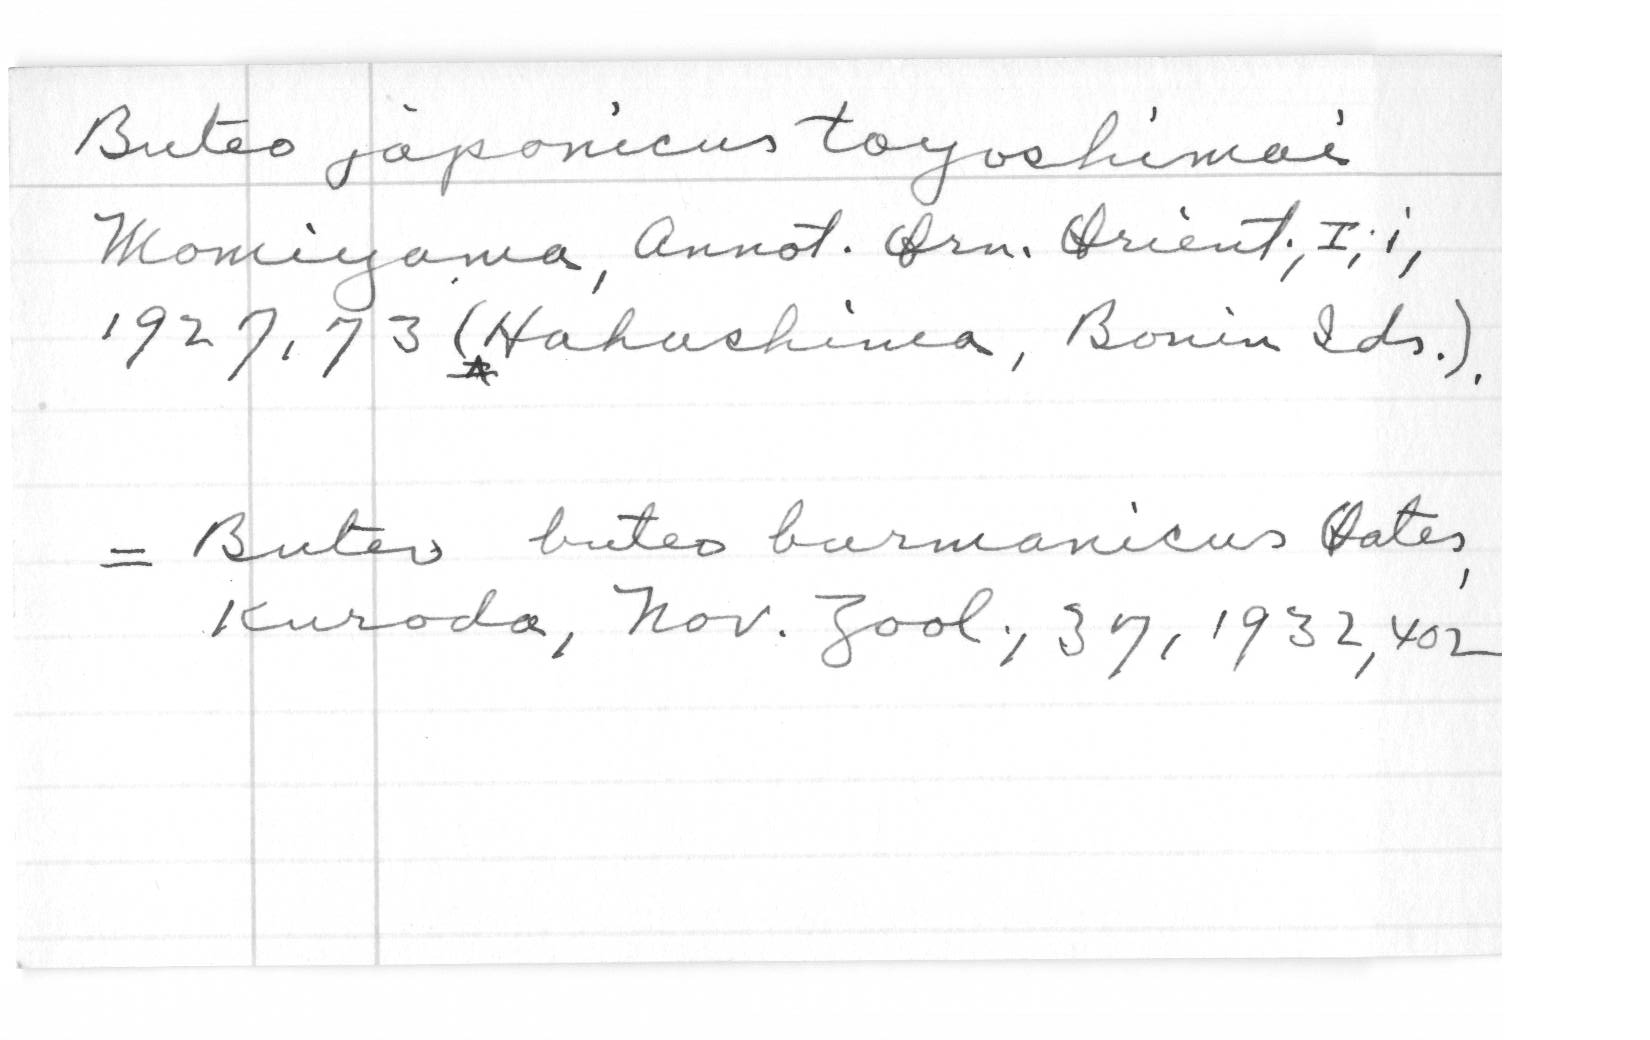 Buteo japonicus toyoshimai
Momiyama, Annot. Orn. Orient., I, i,
1927, 73 (Hahashima, Bonin Ids.).
= Buteo buteo burmanicus Oates,
Kuroda, Nov. Zool., 37, 1932, 402